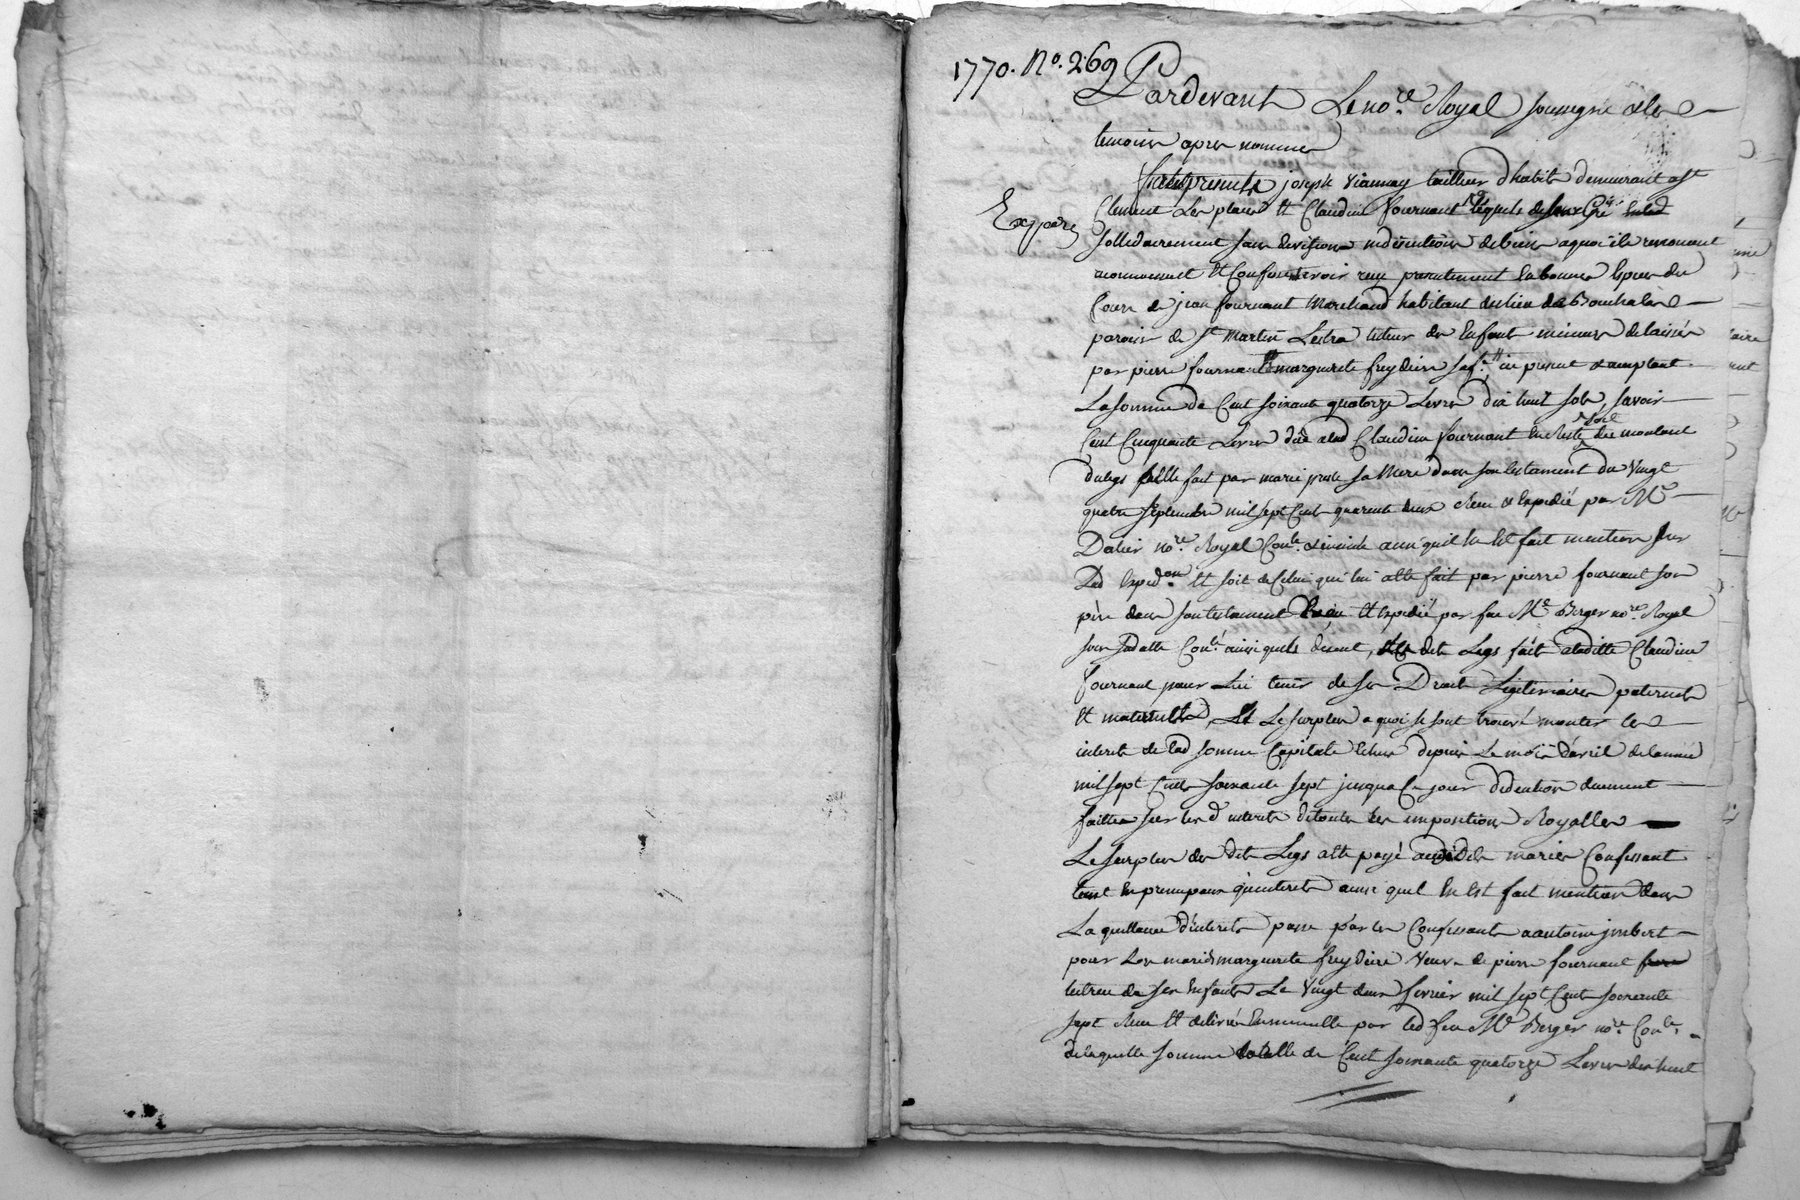 1770. No. 269
Pardevant Le nore. Royal soussigné et les
temoins apres nommes
furent presents joseph viannay tailleur d'habits demeurant a st
Expédié
Clement Les places et Claudine fournant Lesquels de Leur Gré
sollidairement sans division ni discution de biens a quoi ils renoncent
reconnoissent et Confessent avoir reçu presentement en bonnes Especes du
Cours de jean fournant Marchand habitant du lieu de
paroisse de st Martin Lestra tuteur des Enfants mineurs delaissés
par pierre fournant marguerite freydiere sa fe. ici present et acceptant
La somme de Cent soixante quatorze Livres dix huit sols, savoir
Cent Cinquante Livres düe a lad Claudine fournant en Reste soit du montant
du legs a elle fait par marie sa Mere dans son testament du vingt
quatre septembre mil sept Cent quarente deux Reçu et Expedié par Me
Dalier nore. Royal Conlé. ainsi qu'il En Est fait mention sur
Lad Expedon. Et soit de Celui qui lui a été fait par pierre fournant son
père dans son testament Reçu Et Expedié par feu Me. Berger nore. Royal
sous sa datte Conlé. ainsi qu'ils disent, Les dits Legs faits a laditte Claudine
fournant pour Lui tenir de ses Droits Legitimaires paternels
Et maternels, Et Le surplus a quoi se sont trouvé monter les
interets de lad somme Capitale Echus depuis Le mois d'avril de l'année
mil sept Cents soixante sept jusqua Ce jour deduction duement
faitte sur les d interets de toutes les impositions Royalles
Le surplus des dits Legs a été payé audits mariés Confessant
tant En principaux qu'interets ainsi quil En Est fait mention dans
La quittance d'interets passé par les Confessants a antoine jmbert
pour Lors mari de marguerite freydiere veuve de pierre fournant
tutrice de ses Enfants Le vingt deux fevrier mil sept Cent soixante
sept Reçu Et delivrée En minutte par led feu Me Berger nore Conlé.
de laquelle somme totalle de Cent soixante quatorze Livres dix huit